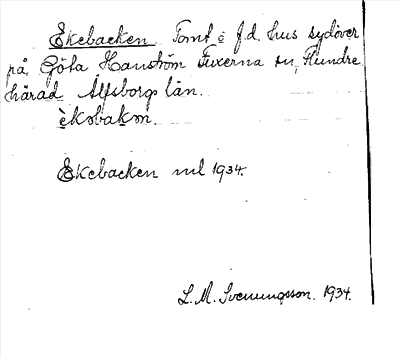 Ekebacken Tomt o f.d. hus sydöver
på Göta Hanström Fuxerna sn, Flundre
härad Älfsborgs län.
èkəbakən.
Ekebacken ml 1934.
L. M. Svenungsson. 1934.